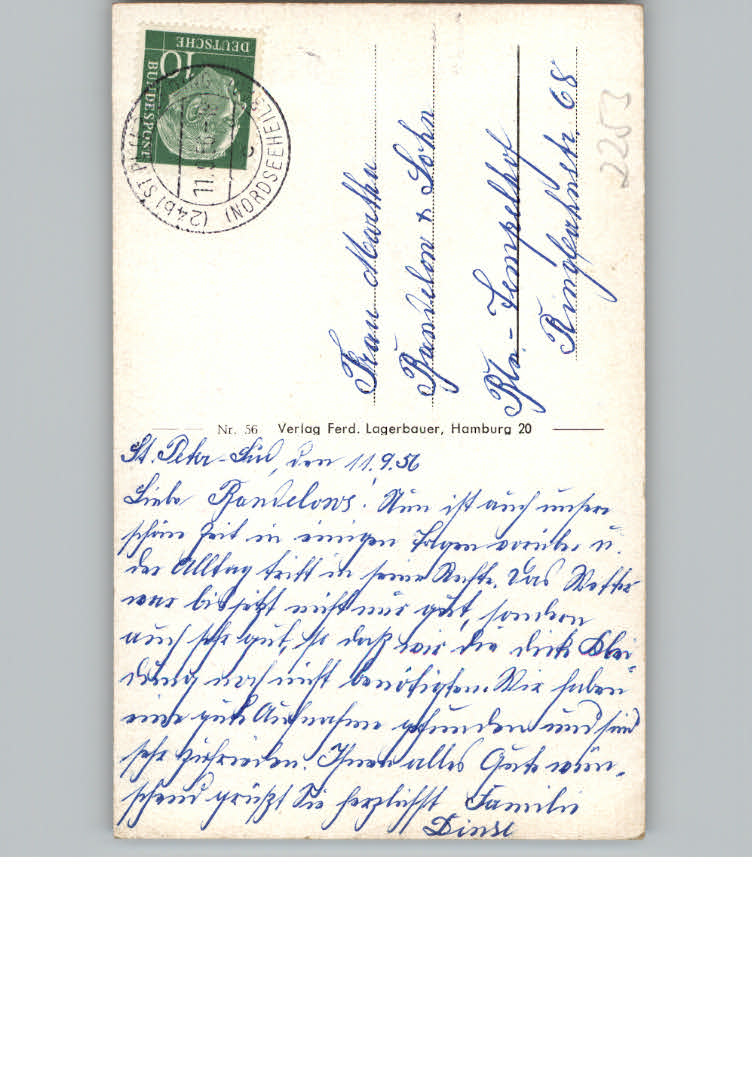 DEUTSCHE
BUNDESPOST
10
(24b) ST. P
(NORDSEEHEILB
11.9.56
2253
Frau Martha
Bandelow & Sohn
Bln.-Tempelhof
Ringbahnstr. 68
Nr. 56 Verlag Ferd. Lagerbauer, Hamburg 20
St. Peter-Süd, den 11.9.56
Liebe Bandelows! Nun ist auch unsere
schöne Zeit in einigen Tagen vorüber u.
der Alltag tritt in seine Rechte. Das Wetter
war bis jetzt nicht nur gut, sondern
auch sehr gut, so daß wir die dicke Klei-
dung noch nicht benötigten. Wir haben
eine gute Aufnahme gefunden und sind
sehr zufrieden. Ihnen alles Gute wün-
schend grüßt Sie herzlichst Familie
Dinse